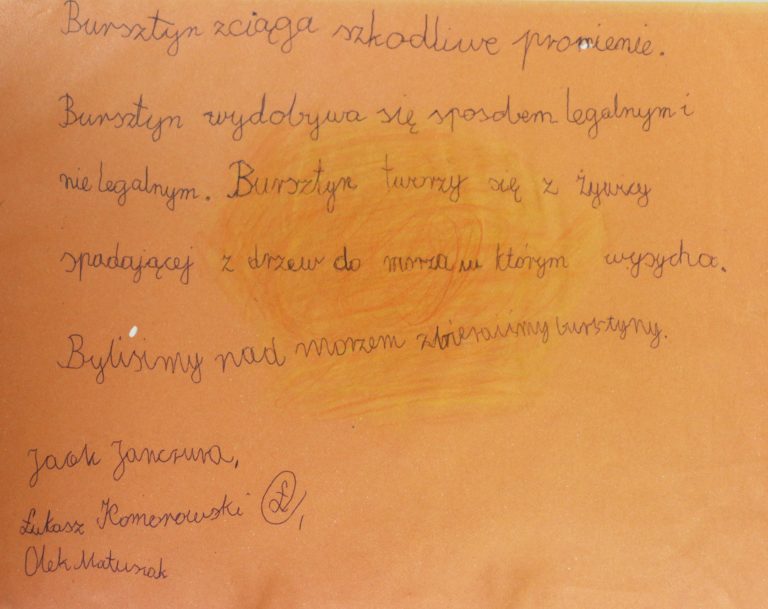 Bursztyn zciąga szkodliwe promienie.
Bursztyn wydobywa się sposobem legalnym i
nie legalnym. Bursztyn tworzy się z żywicy
spadającej z drzew do morza w którym wysycha.
Bylisimy nad morzem zbieraiimy bursztyny.
Jacek Janczura,
Łukasz Komorowski Ł,
Olek Matusiak